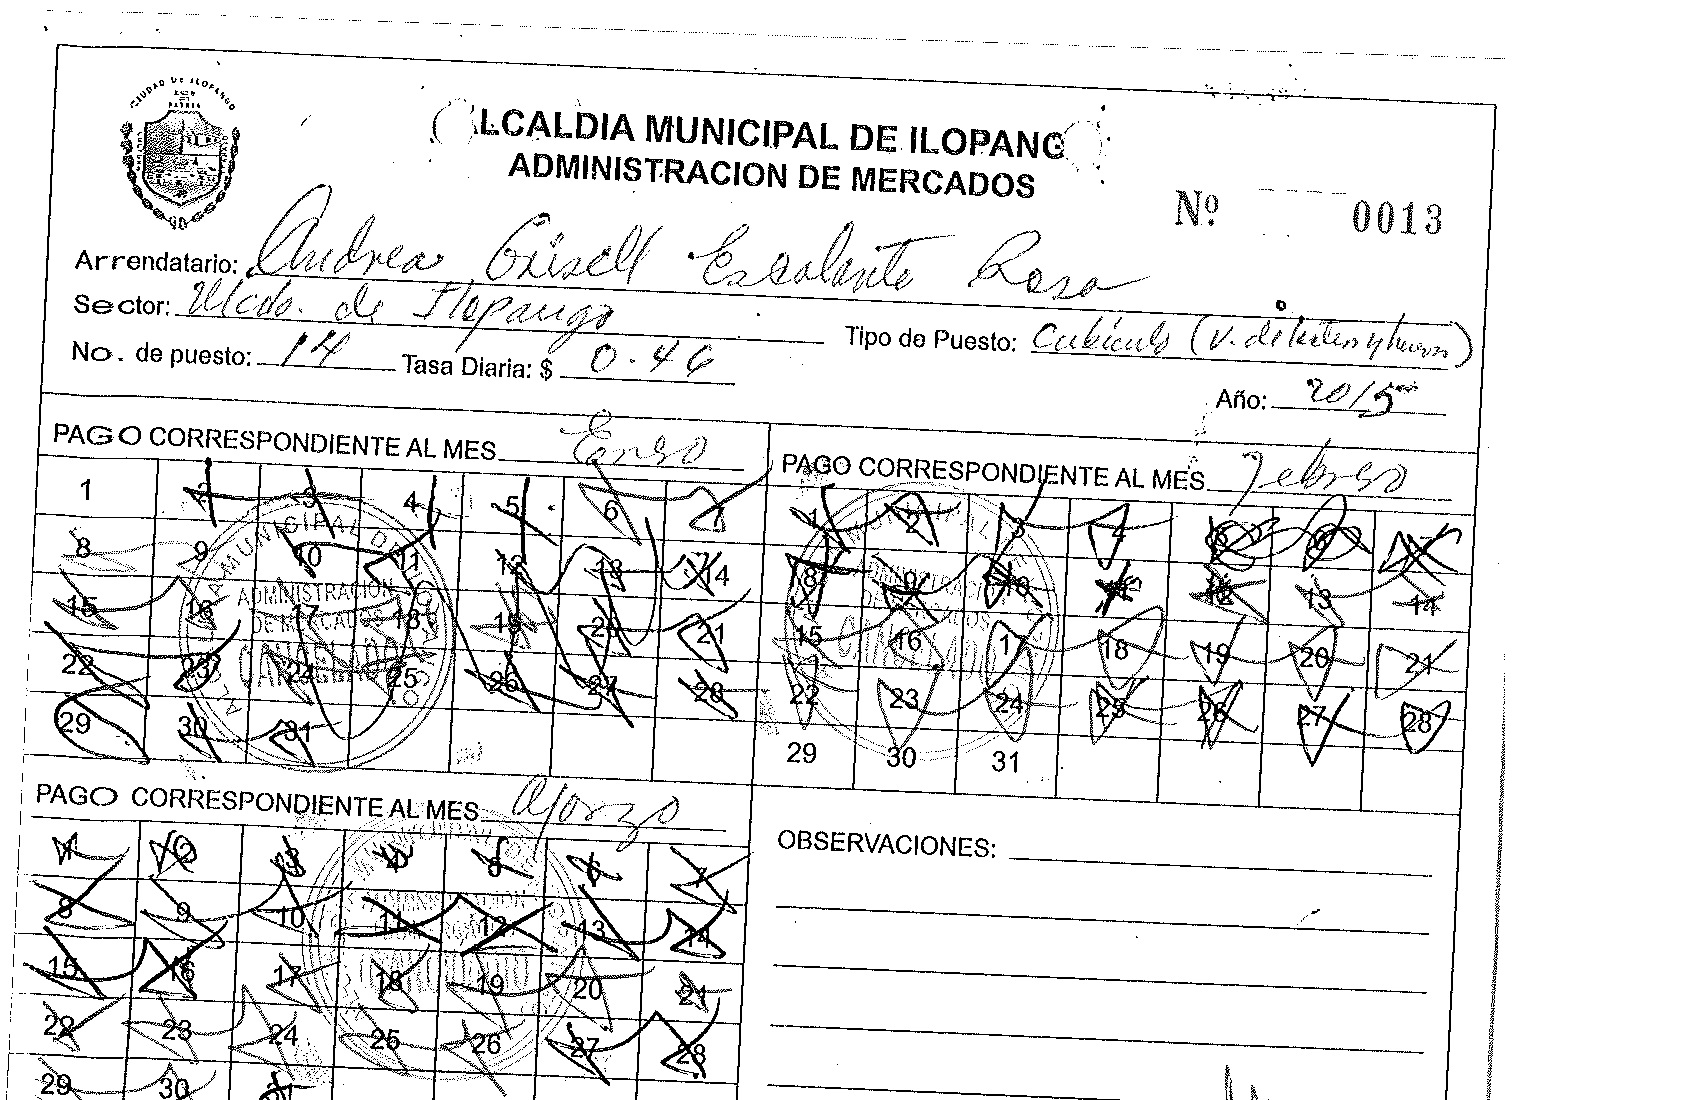 CIUDAD DE ILOPANGO
ALCALDIA MUNICIPAL DE ILOPANGO
ADMINISTRACION DE MERCADOS
Nº 0013
Arrendatario: Andrea Grisell Escalante Rosa
Sector: Mcdo. de Ilopango
Tipo de Puesto: Cubiculo (v. de
No. de puesto: 14 Tasa Diaria: $ 0.46
Año: 2015
PAGO CORRESPONDIENTE AL MES Enero
1 2 3 4 5 6 7
8 9 10 11 12 13 14
15 16 17 18 19 20 21
22 23 24 25 26 27 28
29 30 31
ADMINISTRACION
DE MERCADOS
CANCELADO
PAGO CORRESPONDIENTE AL MES Febrero
1 2 3 4 5 6 7
8 9 10 11 12 13 14
15 16 17 18 19 20 21
22 23 24 25 26 27 28
29 30 31
PAGO CORRESPONDIENTE AL MES Marzo
1 2 3 4 5 6 7
8 9 10 11 12 13 14
15 16 17 18 19 20 21
22 23 24 25 26 27 28
29 30 31
OBSERVACIONES: